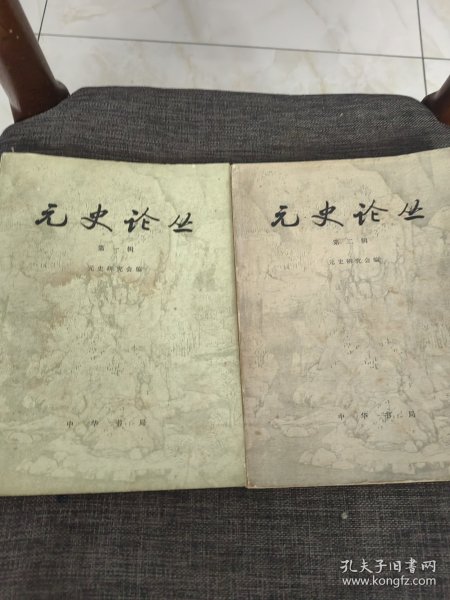 元史论丛
第一辑
元史研究会编
中华书局
元史论丛
第二辑
元史研究会编
中华书局
孔夫子旧书网
www.kongfz.com